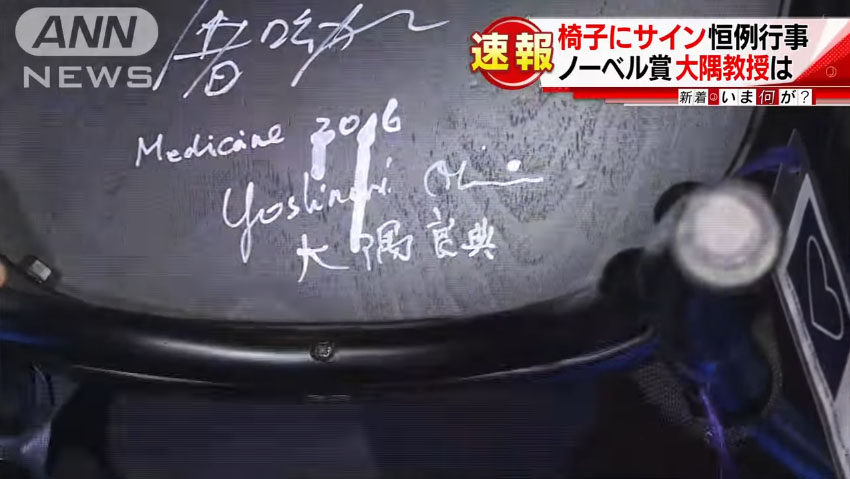 ANN
NEWS
速報
椅子にサイン恒例行事
ノーベル賞 大隅教授は
新着 いま何が?
Medicine 2016
Yoshinori
大隅良典